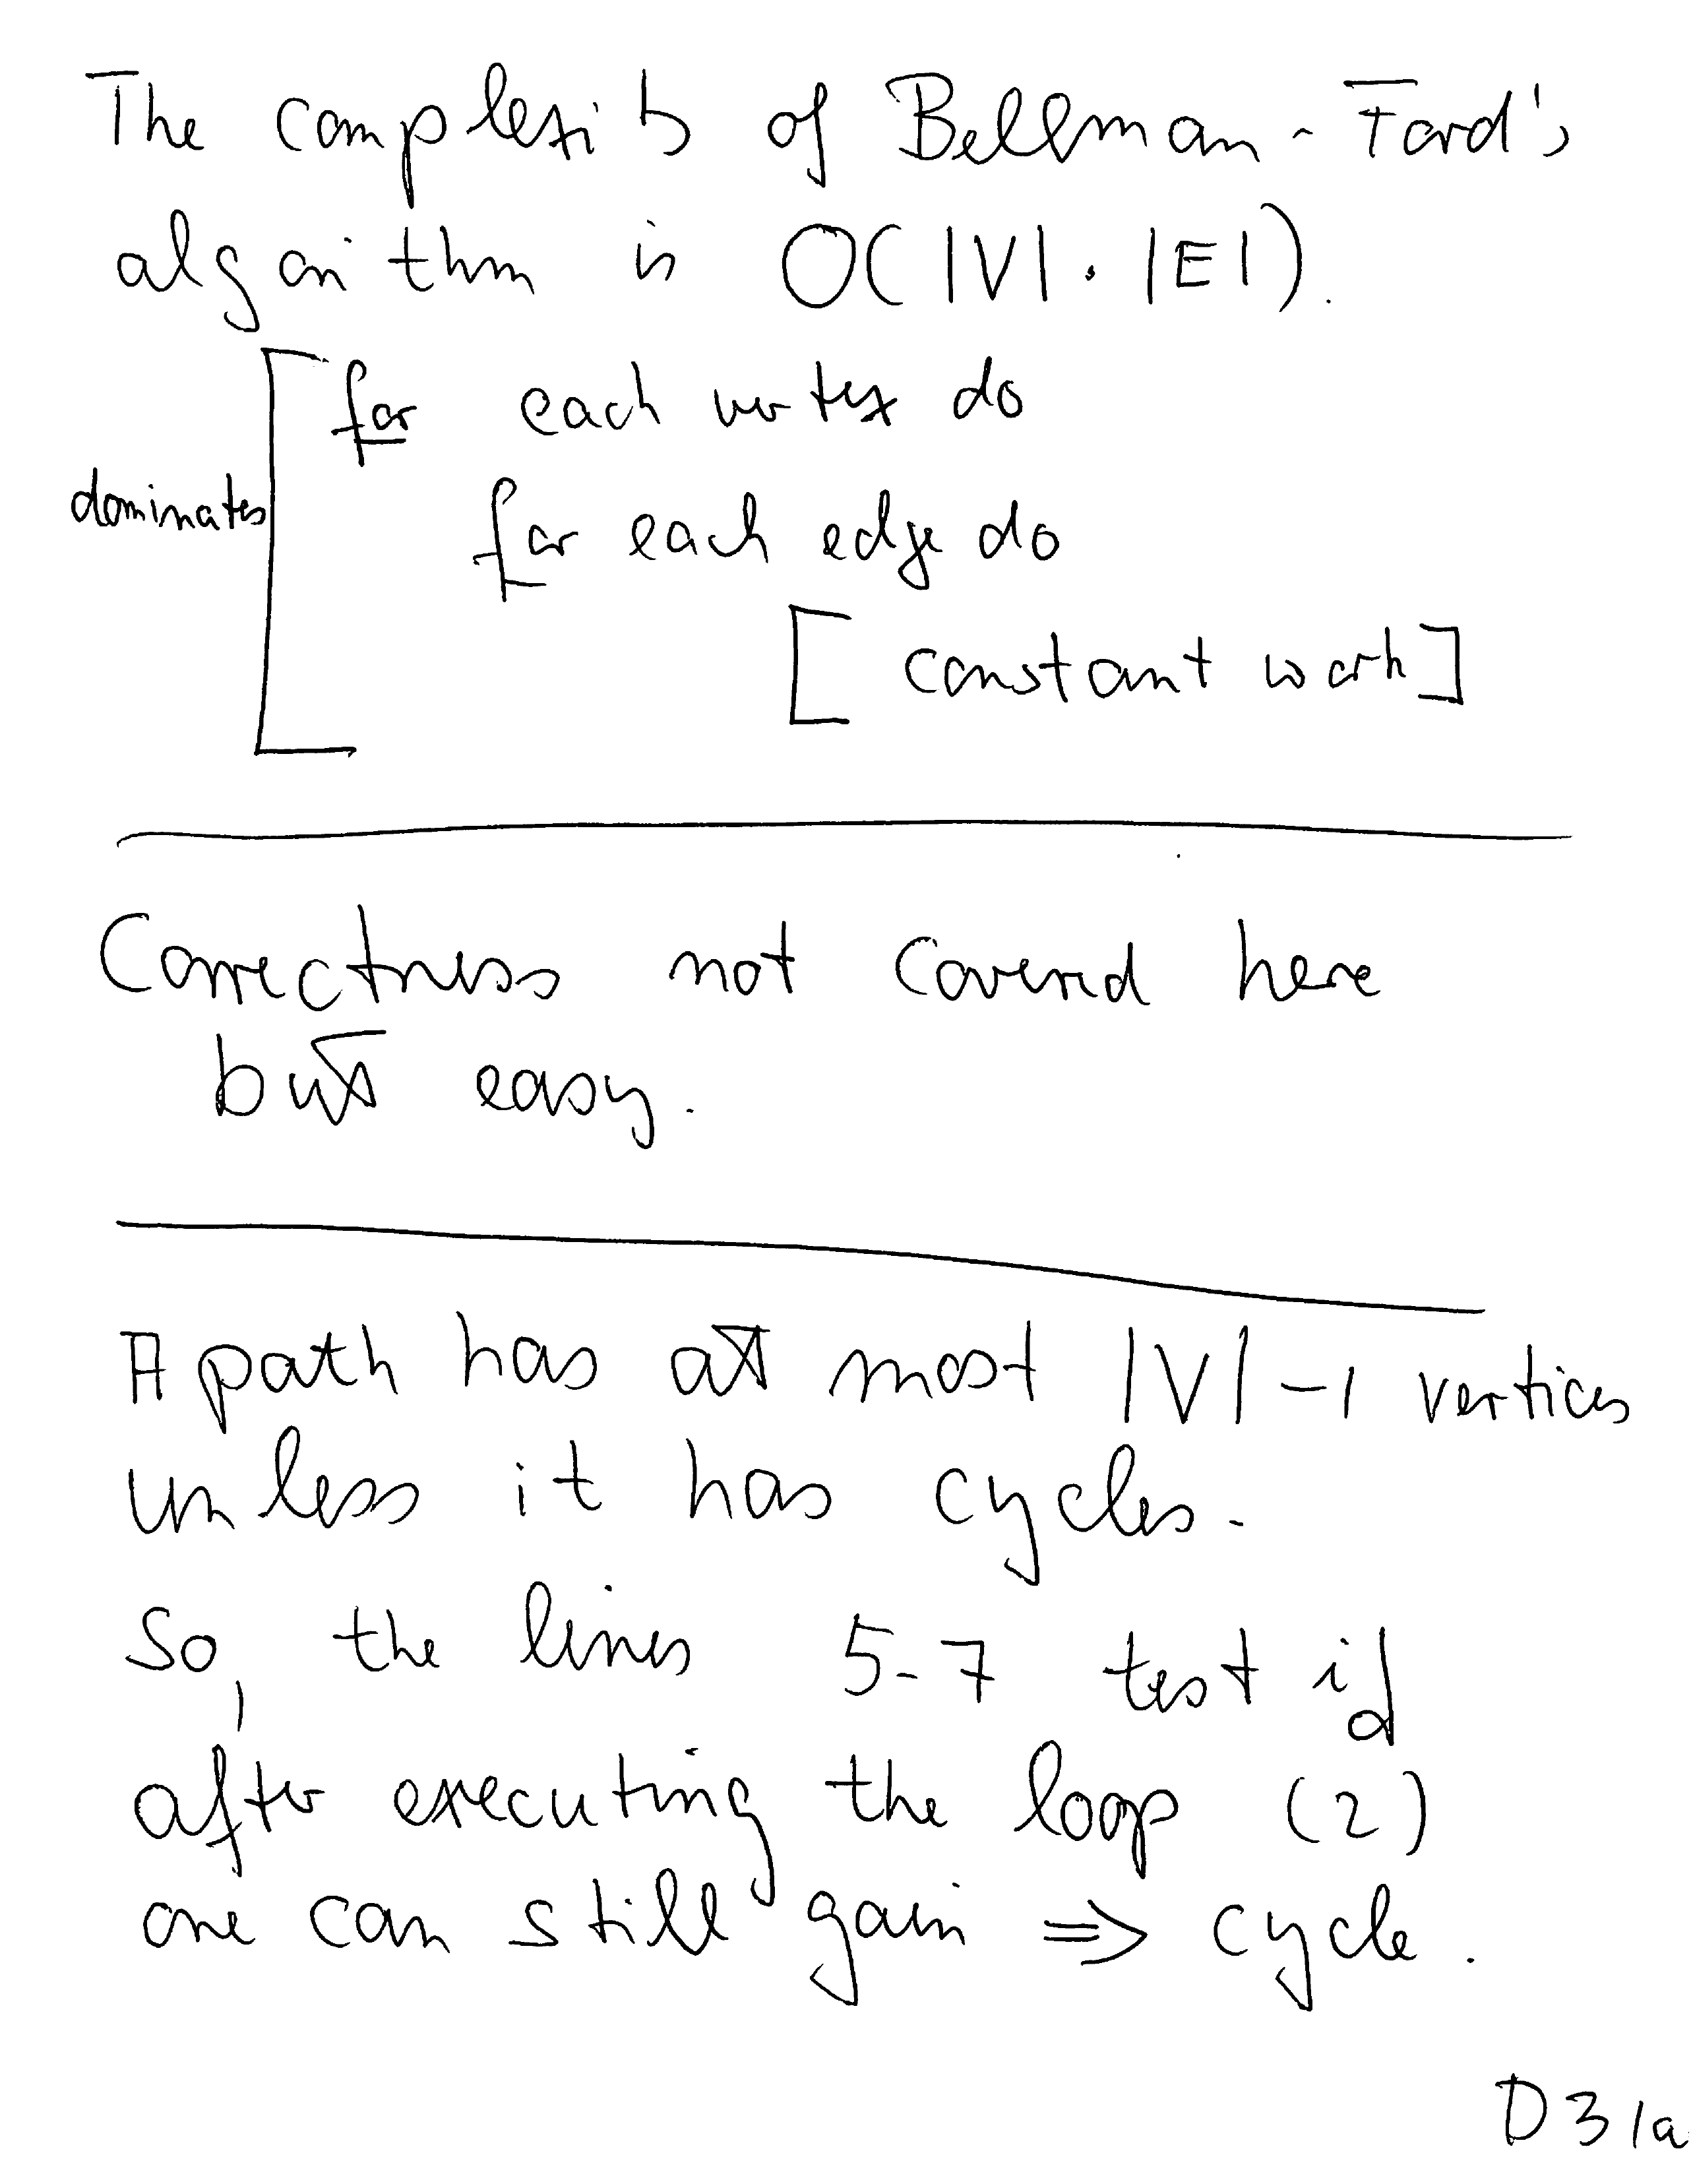 The complexity of Bellman-Ford's
algorithm is O(|V| · |E|).
for each vertex do
dominates
for each edge do
[ constant work ]
Correctness not covered here
but easy.
A path has at most |V|-1 vertices
unless it has cycles.
So, the lines 5-7 test if
after executing the loop (2)
one can still gain ⇒ cycle.
D31a